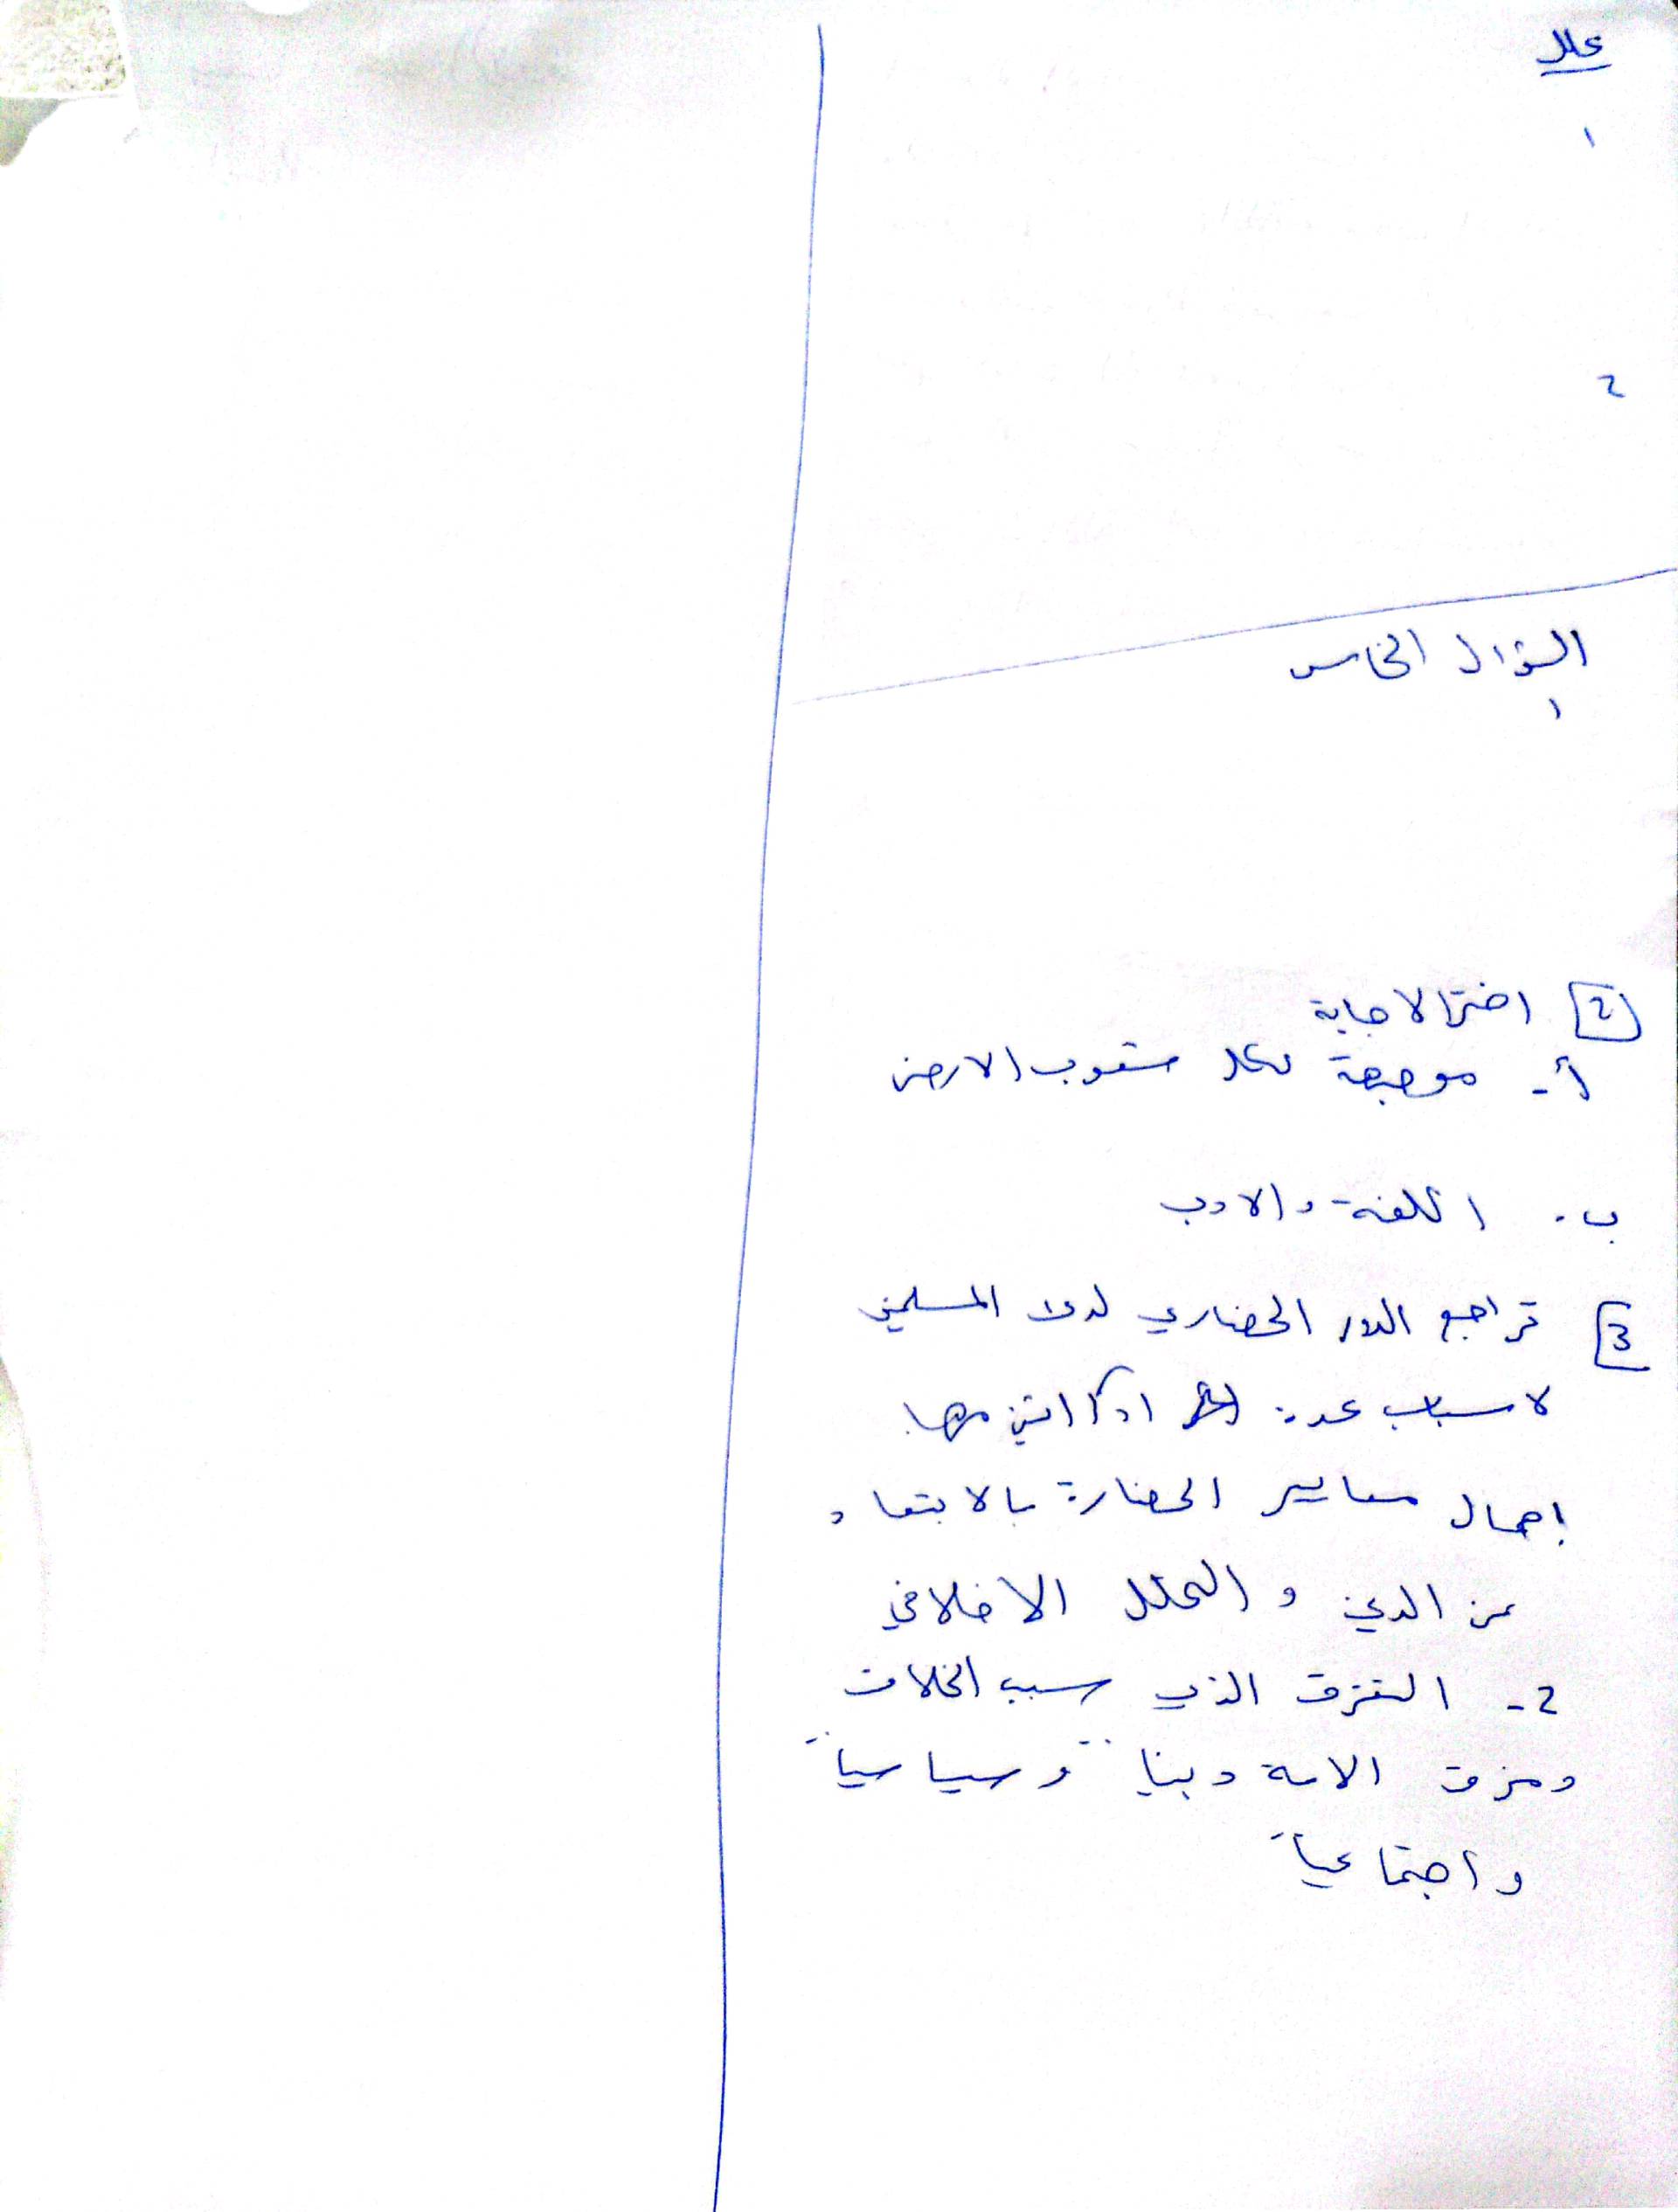 علل
١
٢
السؤال الخامس
١
2 اختر الاجابة
أ- موجهة لكل شعوب الارض
ب. اللغة والادب
3 تراجع الدور الحضاري لدى المسلمين
لاسباب عدة اذكر اثنين منها.
إهمال معايير الحضارة بالابتعاد
عن الدين و التحلل الاخلاقي
2- التفرق الذي سبب الخلاف
ومزق الامة دينياً وسياسياً
واجتماعياً